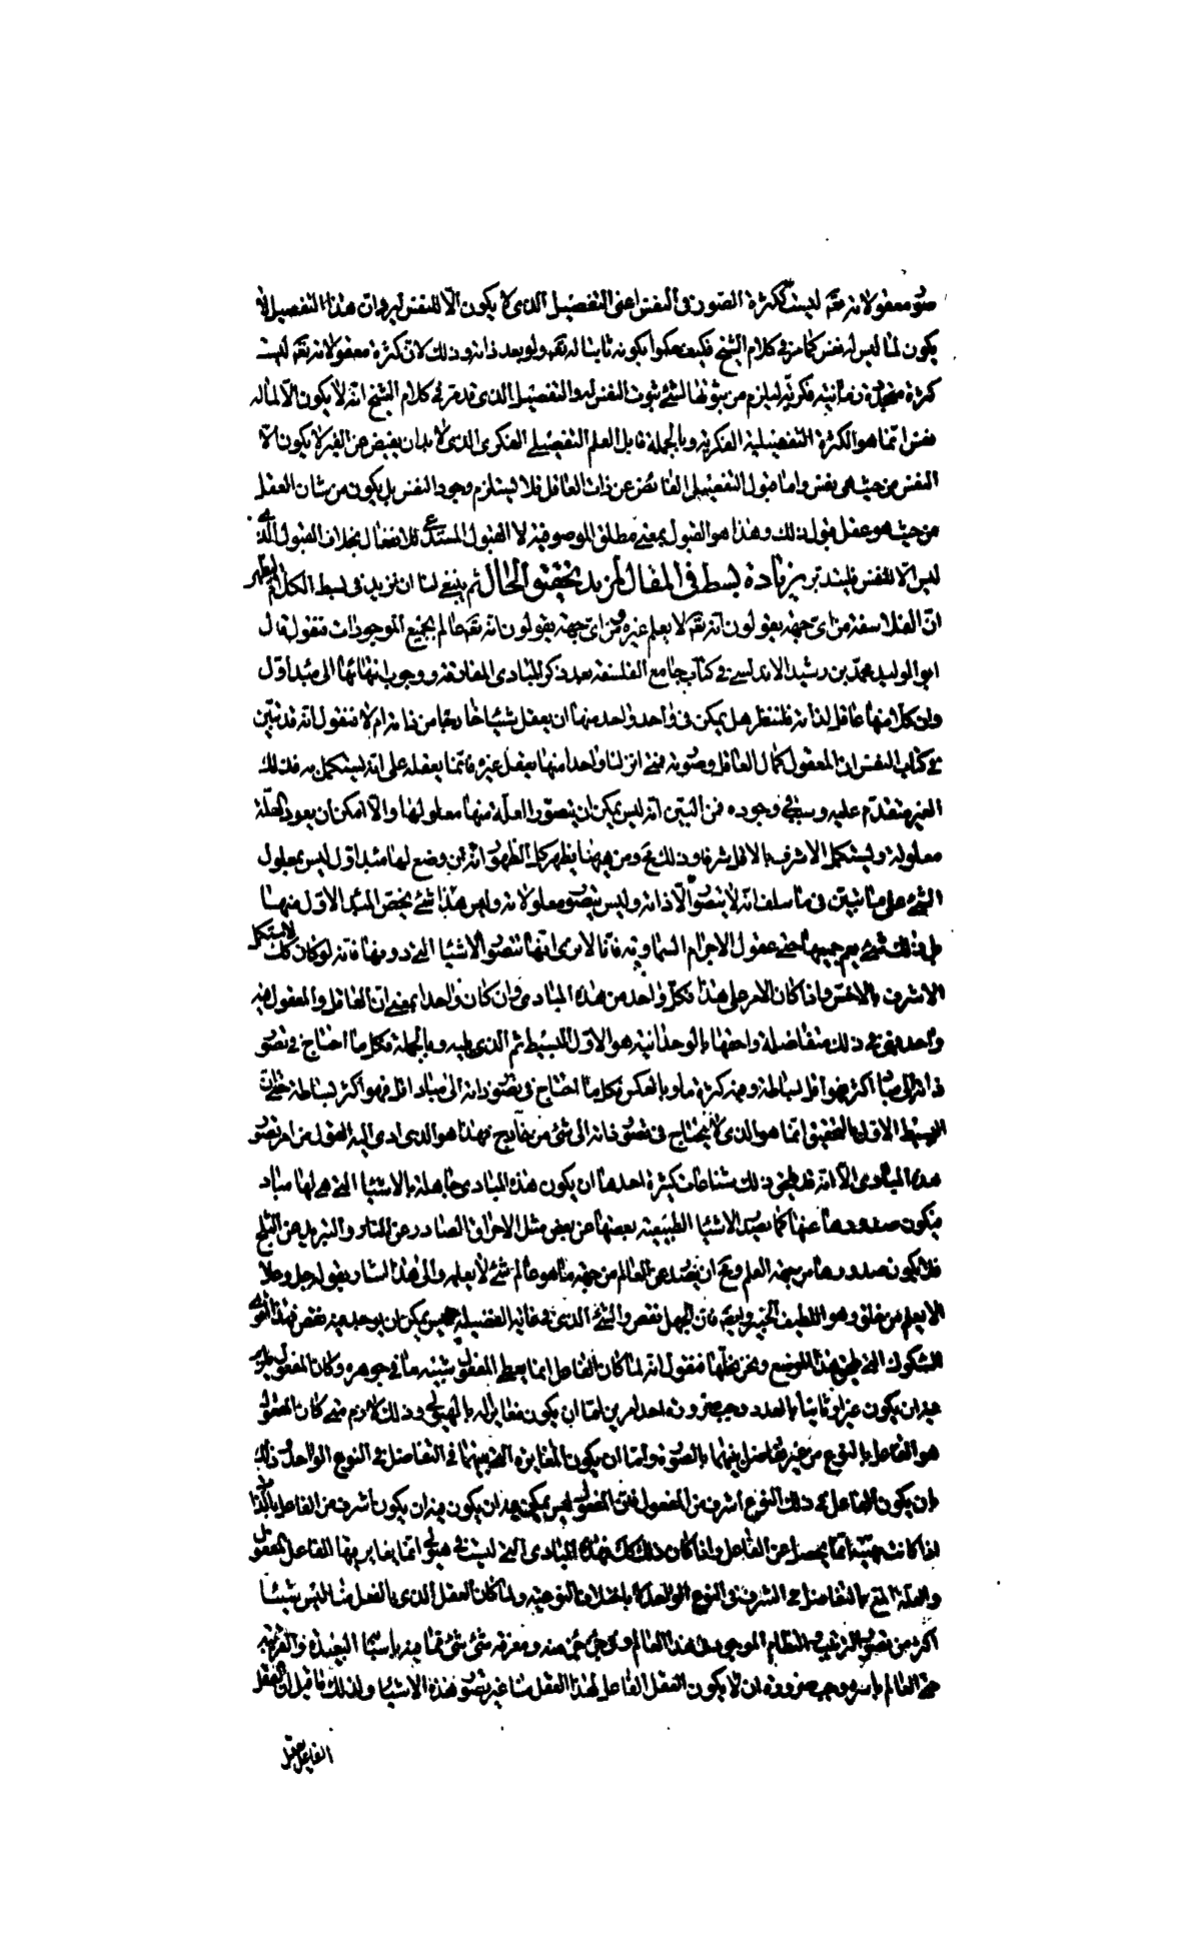 صور معقولاته تعـ ليست ككثرة الصور فى النفس اعنى التفصيل الذى لا يكون الا للنفس هذا التفصيل
يكون لما ليس له نفس كما مر فى كلام الشيخ فكيف حكموا بكونه ثابتا له تعـ ولو بعد ذاته وذلك لان كثرة معقولاته تعـ ليست
كثرة فكرية ليلزم من ثبوتها لشئ ثبوت النفس له والتفصيل الذى قد مر فى كلام الشيخ انه لا يكون الا لما له
نفس انما هو الكثرة التفصيلية الفكرية وبالجملة قابل العلم التفصيلى الفكرى الذى لا بد ان يفيض عن الغير لا يكون الا
النفس من حيث هى نفس واما قبول التفصيل الفائض عن ذات العاقل فلا يستلزم وجود النفس بل يكون من شان العقل
من حيث هو عقل قبول ذلك وهذا هو القبول بمعنى مطلق الموصوفية لا القبول المستدعى للانفعال بخلاف القبول الذى
ليس الا للنفس فليتدبر زيادة بسط فى المقال لمزيد تحقيق الحال ثم ينبغى لنا ان نزيد فى بسط الكلام ليظهر
ان الفلاسفة من اى جهة يقولون انه تعـ لا يعلم غيره ومن اى جهة يقولون انه تعـ عالم بجميع الموجودات فنقول قال
ابو الوليد محمد بن رشيد الاندلسى فى كتاب جامع الفلسفة بعد ذكر المبادى المفارقة ووجوب انتهائها الى مبدا اول
وان كلا منها عاقل لذاته فلننظر هل يمكن فى واحد واحد منها ان يعقل شيئا خارجا من ذاته ام لا فنقول انه قد تبين
فى كتاب النفس ان المعقول كمال العاقل وصورته فمتى انزلنا واحدا منها يعقل غيره فانما يعقله على انه يستكمل به فذلك
الغير متقدم عليه وسبب فى وجوده فمن البين انه ليس يمكن ان يتصور العلة منها معلولها والا امكن ان يعود العلة
معلولة ويستكمل الاشرف بالاقل شرفا وذلك مح ومن ههنا يظهر كل الظهور انه من وضع لها مبدا اول ليس بمعلول
لشئ على ما تبين فى ما سلف انه لا يتصور الا ذاته وليس يتصور معلولاته وليس هذا شئ يخص المبدا الاول منها
بل ذلك شئ يعم جميعها حتى عقول الاجرام السماوية فانا لا نرى انها تتصور الاشياء التى دونها فانه لو كان كك لاستكمل
الاشرف بالاخس واذا كان الامر على هذا فكل واحد من هذه المبادى وان كان واحدا بمعنى ان العاقل والمعقول فيه
واحد فهى فى ذلك متفاضلة واحقها بالوحدانية هو الاول البسيط ثم الذى يليه وبالجملة فكل ما احتاج فى تصور
ذاته الى مباد اكثر فهو اقل بساطة وفيه كثرة ما وبالعكس فكل ما احتاج فى تصور ذاته الى مباد اقل فهو اكثر بساطة حتى ان
البسيط الاول بالتحقيق انما هو الذى لا يحتاج فى تصور ذاته الى شئ من خارج فهذا هو الذى ادى اليه القول من امر تصور
هذه المبادى الا انه قد يلحق ذلك شناعات كثيرة احدها ان يكون هذه المبادى جاهلة بالاشياء التى هى لها مباد
فيكون صدورها عنها كما يصدر الاشياء الطبيعية بعضها عن بعض مثل الاحراق الصادر عن النار والتبريد عن الثلج
فلا يكون صدورها من جهة العلم ومح ان يصدر عن العالم من جهة ما هو عالم شئ لا يعلمه والى هذا اشار بقوله جل وعلا
الا يعلم من خلق وهو اللطيف الخبير وايضا فان الجهل نقص والشئ الذى فى غاية الفضيلة ليس يمكن ان يوجد فيه نقص فهذا اقوى
الشكوك التى يلحق هذا الموضع ونحن نحلها فنقول انه لما كان الفاعل انما يعطى المفعول شبيه ما فى جوهره وكان المفعول يلزم
فيه ان يكون غيرا وثانيا بالعدد وجب ضرورة احد امرين اما ان يكون مغايرا له بالهيولى وذلك لازم متى كان المفعول
هو الفاعل بالنوع من غير تفاضل بينهما بالصورة واما ان يكون المغايرة التى بينهما فى التفاضل فى النوع الواحد وذلك
بان يكون الفاعل فى ذلك النوع اشرف من المفعول فان المفعول ليس يمكن فيه ان يكون اشرف من الفاعل بالذات
اذا كانت مهيته انما يحصل عن الفاعل واذا كان ذلك كك فهذه المبادى التى ليست فى هيولى انما يغاير فيها الفاعل المفعول
والعلة المعلول بالتفاضل فى الشرف فى النوع الواحد لا باختلاف النوعية ولما كان العقل الذى بالفعل منا ليس شيئا
اكثر من تصور الترتيب والنظام الموجود فى هذا العالم وفى جزء جزء منه ومعرفة شئ شئ مما فيه باسبابه البعيدة والقريبة
حتى العالم باسره وجب ضرورة ان لا يكون العقل الفاعل لهذا العقل منا غير تصور هذه الاشياء ولذلك ما قيل ان العقل
الفاعل يعقل